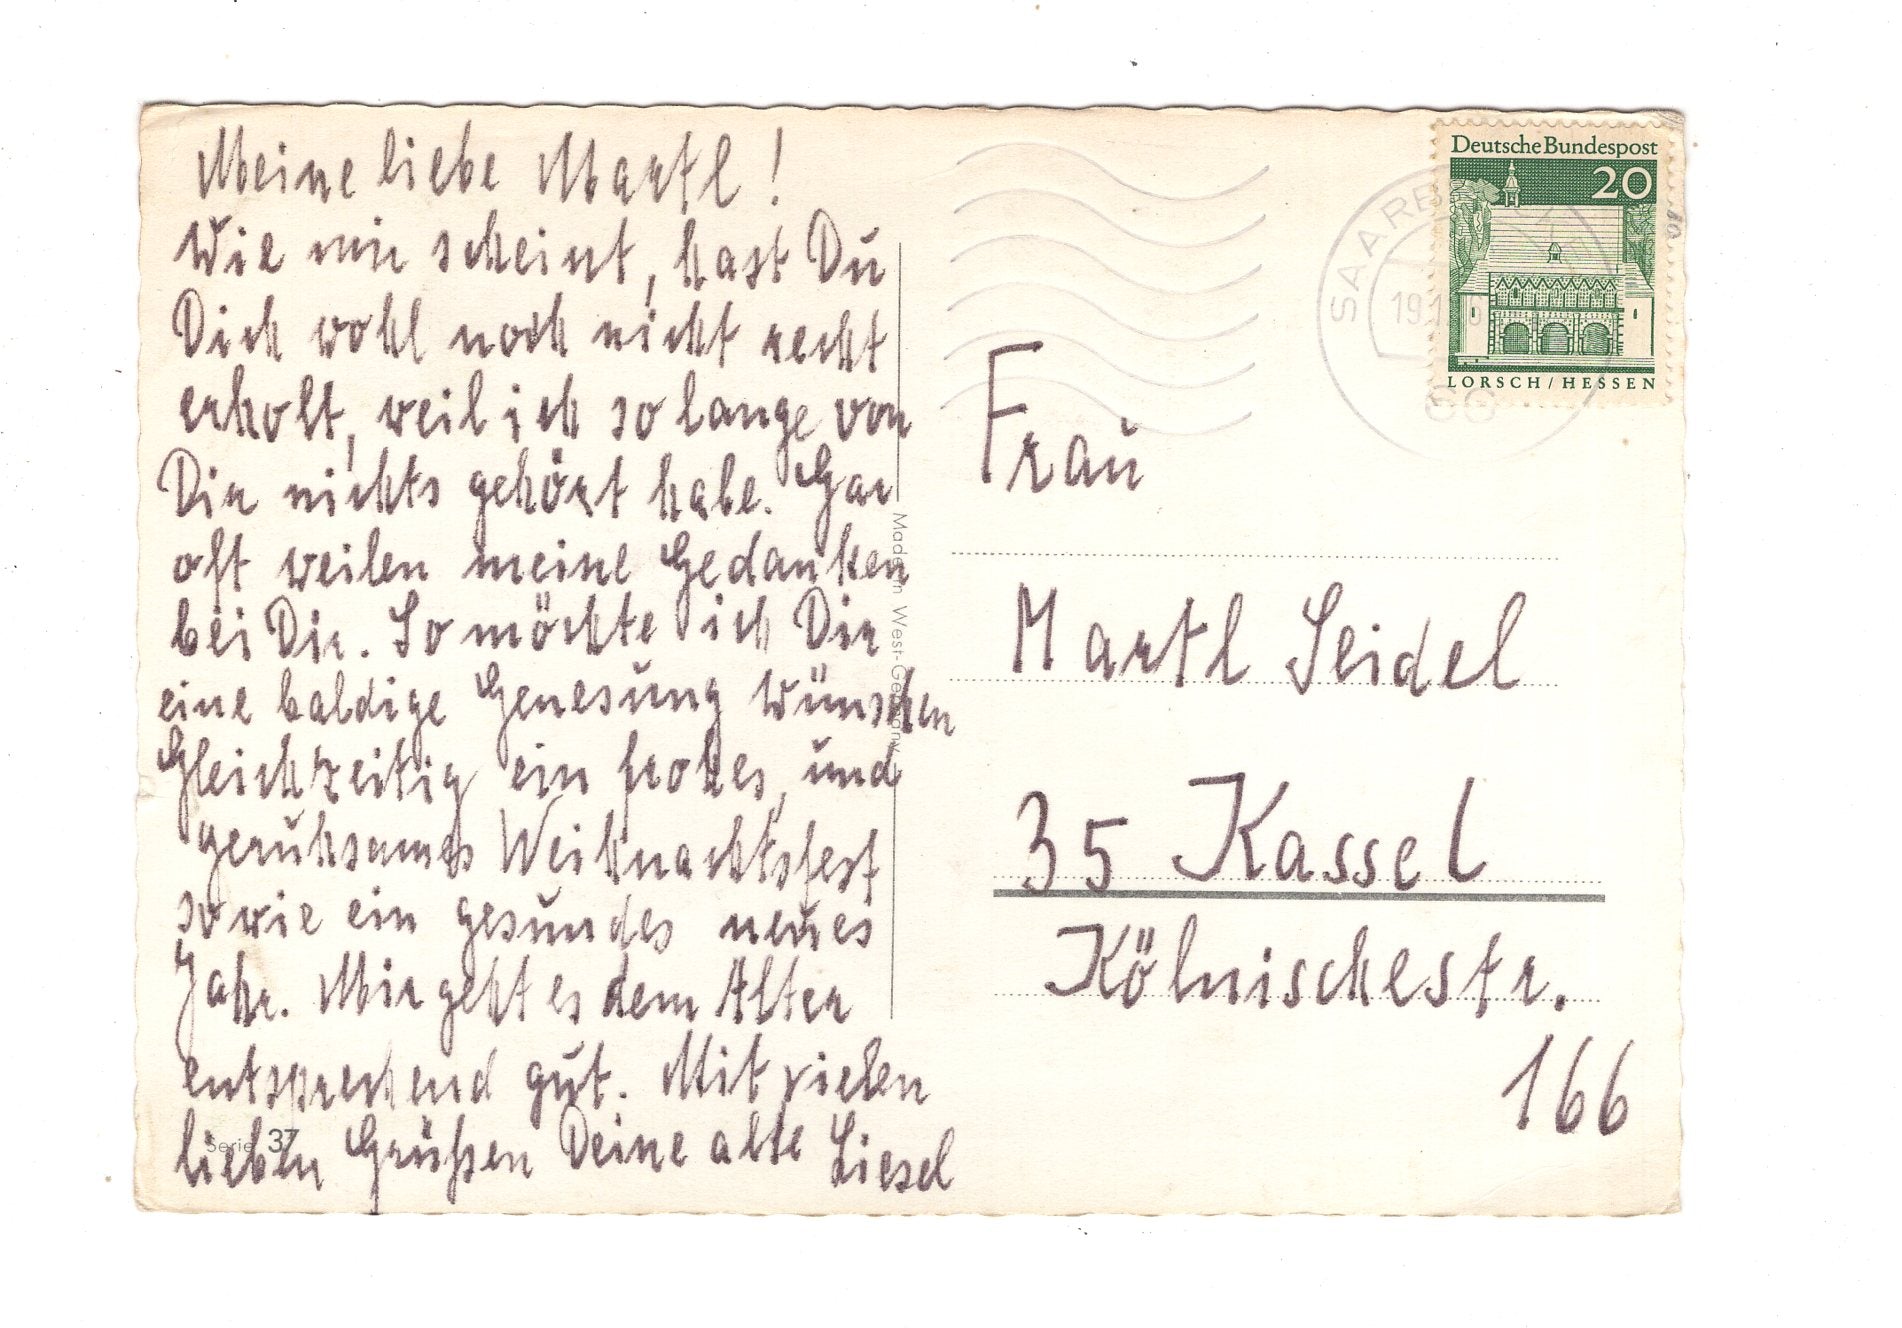 Meine liebe Martl!
Wie mir scheint, hast Du
Dich wohl noch nicht recht
erholt, weil ich so lange von
Dir nichts gehört habe. Gar
oft weilen meine Gedanken
bei Dir. So möchte ich Dir
eine baldige Genesung wünschen
Gleichzeitig ein frohes, und
geruhsames Weihnachtsfest
sowie ein gesundes neues
Jahr. Mir geht es dem Alter
entsprechend gut. Mit vielen
lieben Grüßen Deine alte Liesel
Serie 37
Made in West-Germany
Deutsche Bundespost
20
LORSCH/HESSEN
Frau
Martl Seidel
35 Kassel
Kölnischestr.
166